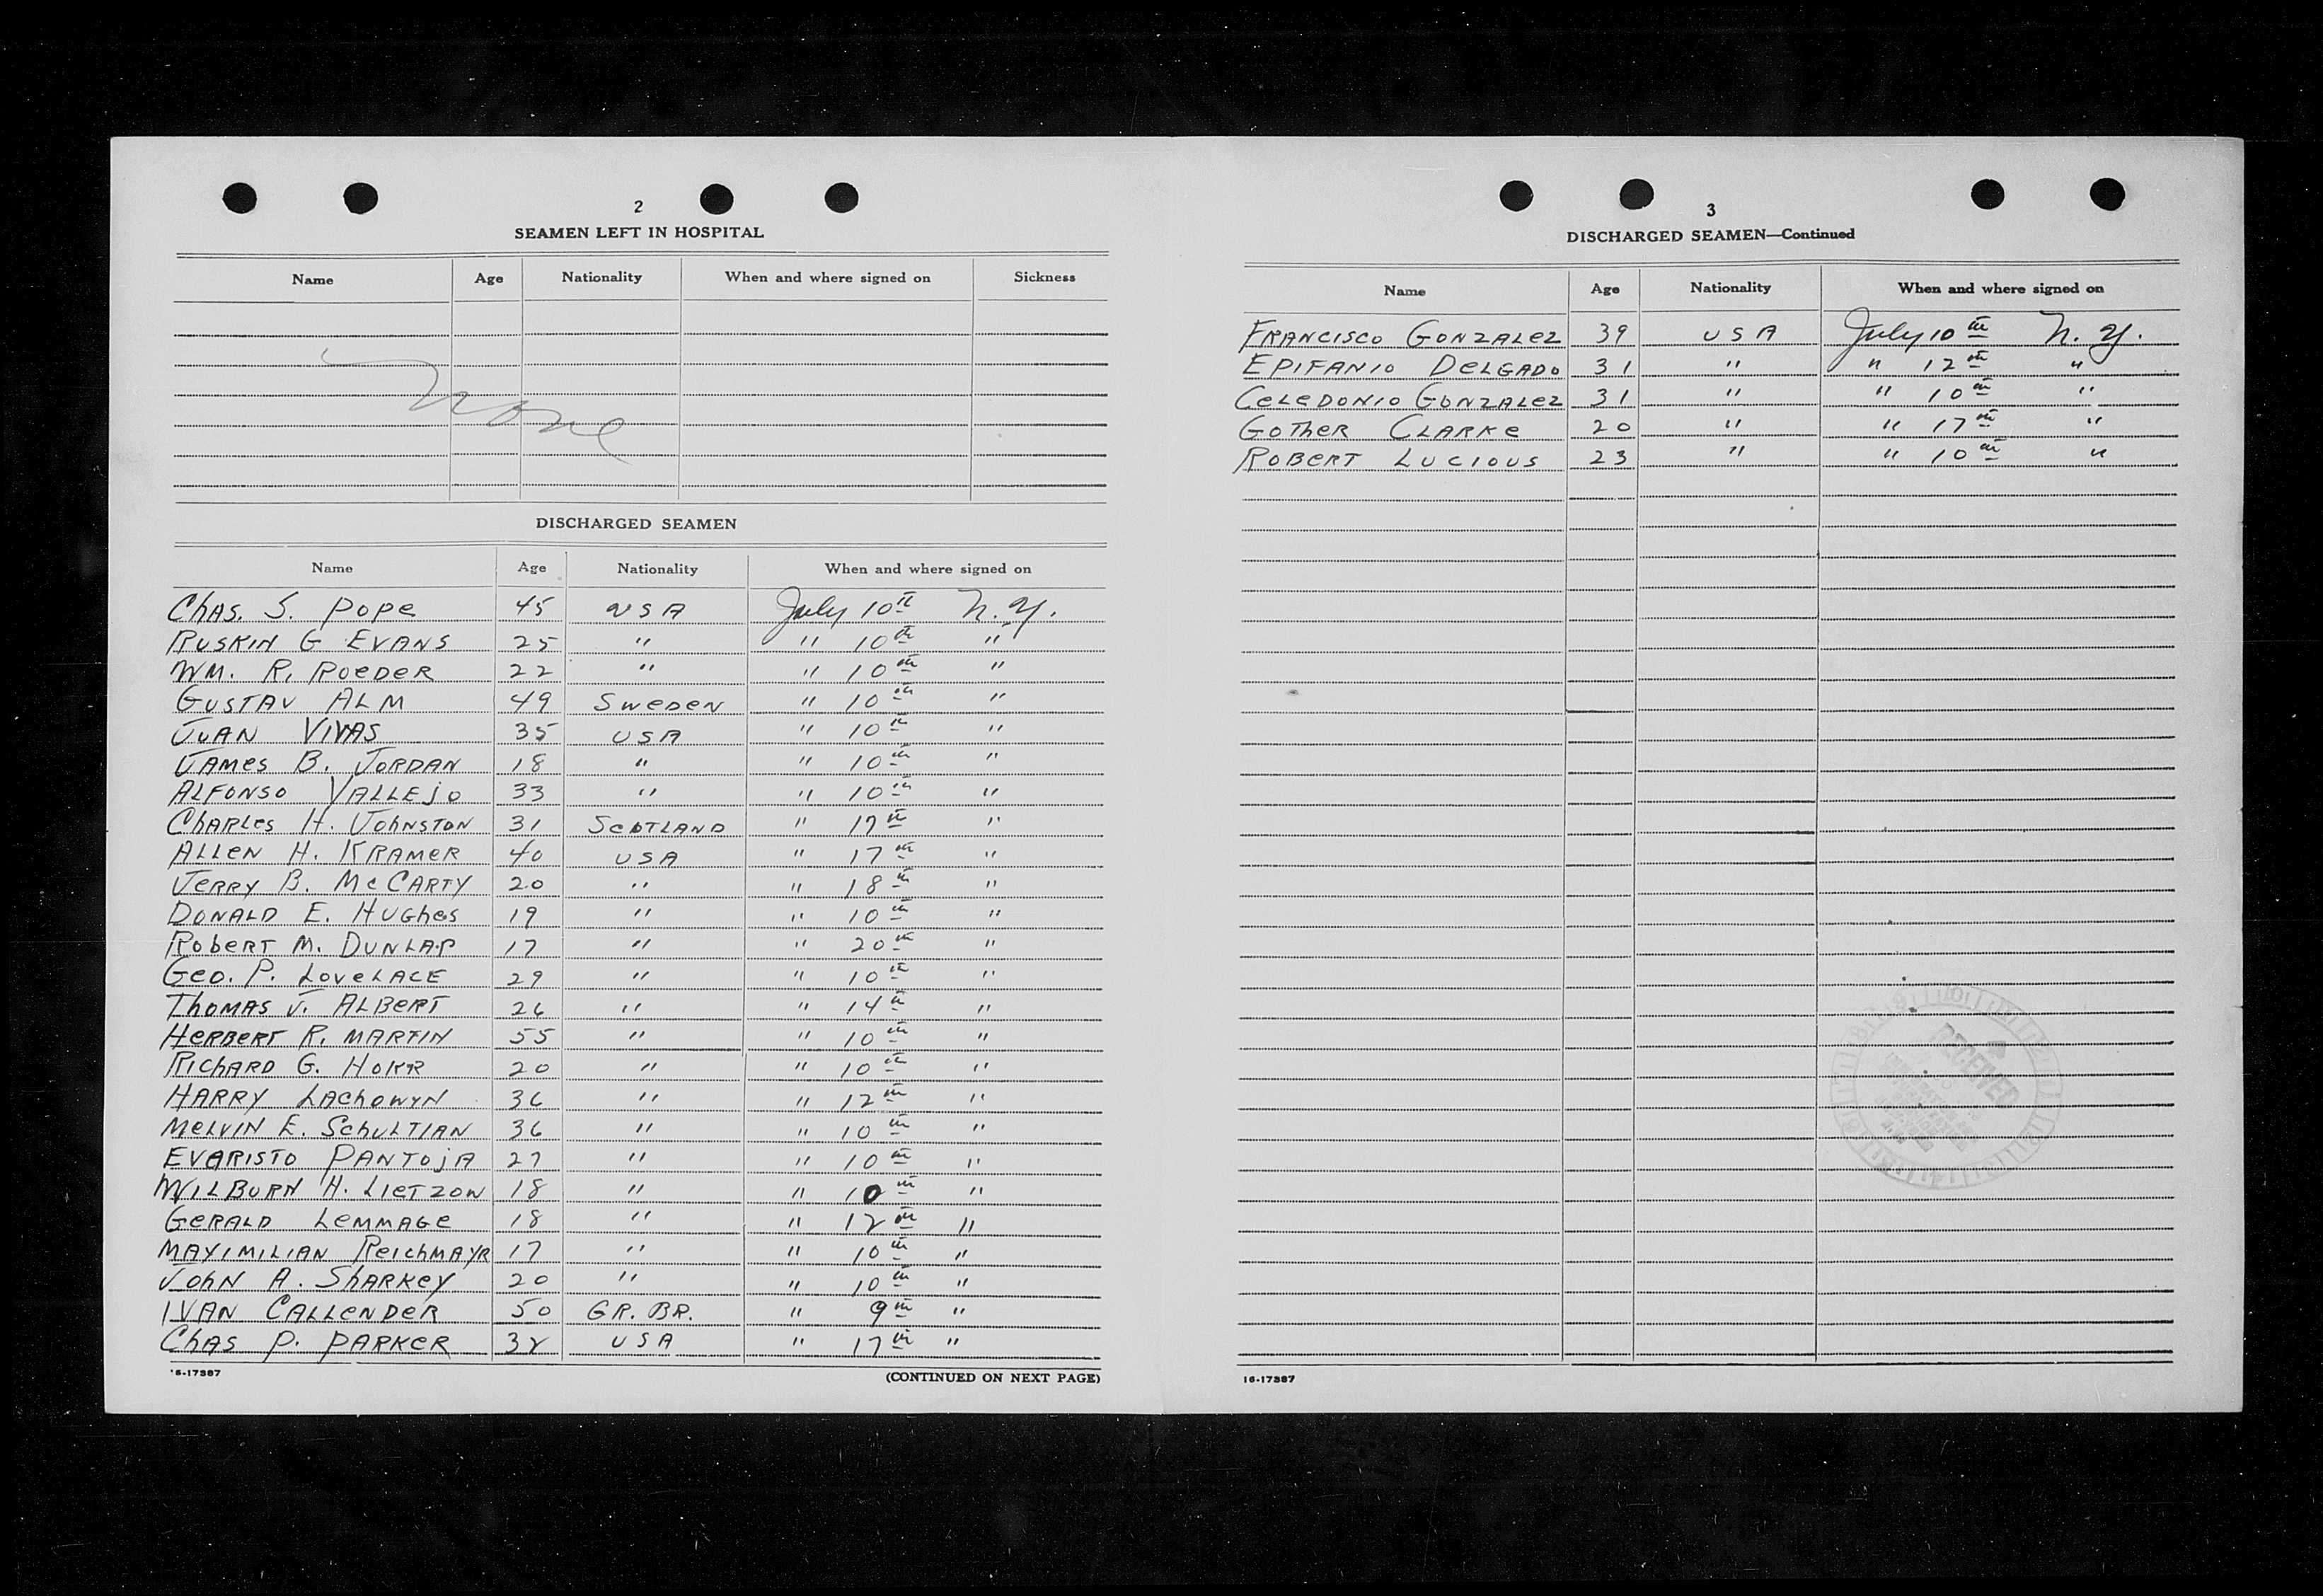 2
SEAMEN LEFT IN HOSPITAL
Name Age Nationality When and where signed on Sickness
None
DISCHARGED SEAMEN
Name Age Nationality When and where signed on
Chas. S. Pope 45 USA July 10th N.Y.
Ruskin G Evans 25 " " 10th "
Wm. R. Roeder 22 " " 10th "
Gustav Alm 49 Sweden " 10th "
Juan Vivas 35 USA " 10th "
James B. Jordan 18 " " 10th "
Alfonso Vallejo 33 " " 10th "
Charles H. Johnston 31 Scotland " 17th "
Allen H. Kramer 40 USA " 17th "
Jerry B. McCarty 20 " " 18th "
Donald E. Hughes 19 " " 10th "
Robert M. Dunlap 17 " " 20th "
Geo. P. Lovelace 29 " " 10th "
Thomas J. Albert 26 " " 14th "
Herbert R. Martin 55 " " 10th "
Richard G. Hokr 20 " " 10th "
Harry Lachowyn 36 " " 12th "
Melvin E. Schultian 36 " " 10th "
Evaristo Pantoja 27 " " 10th "
Wilburn H. Lietzow 18 " " 10th "
Gerald Lemmage 18 " " 12th "
Maximilian Reichmayr 17 " " 10th "
John A. Sharkey 20 " " 10th "
Ivan Callender 50 GR. BR. " 9th "
Chas P. Parker 32 USA " 17th "
16-17387 (CONTINUED ON NEXT PAGE)
3
DISCHARGED SEAMEN—Continued
Name Age Nationality When and where signed on
Francisco Gonzalez 39 USA July 10th N.Y.
Epifanio Delgado 31 " " 12th "
Celedonio Gonzalez 31 " " 10th "
Gother Clarke 20 " " 17th "
Robert Lucious 23 " " 10th "
RECEIVED
16-17387